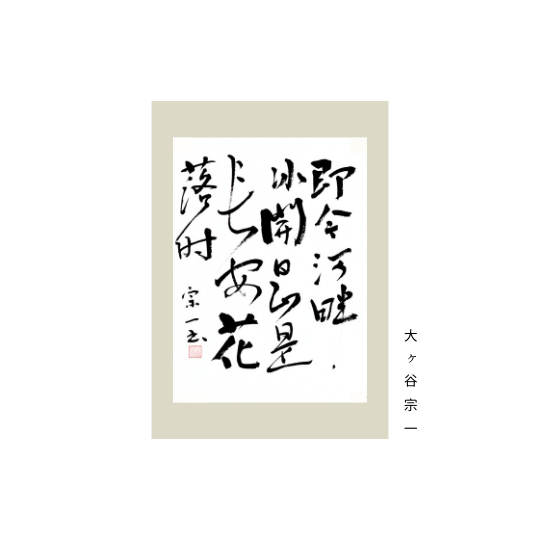 即今河畔
冰開日正是
長安花
落時
宗一書
大ヶ谷宗一